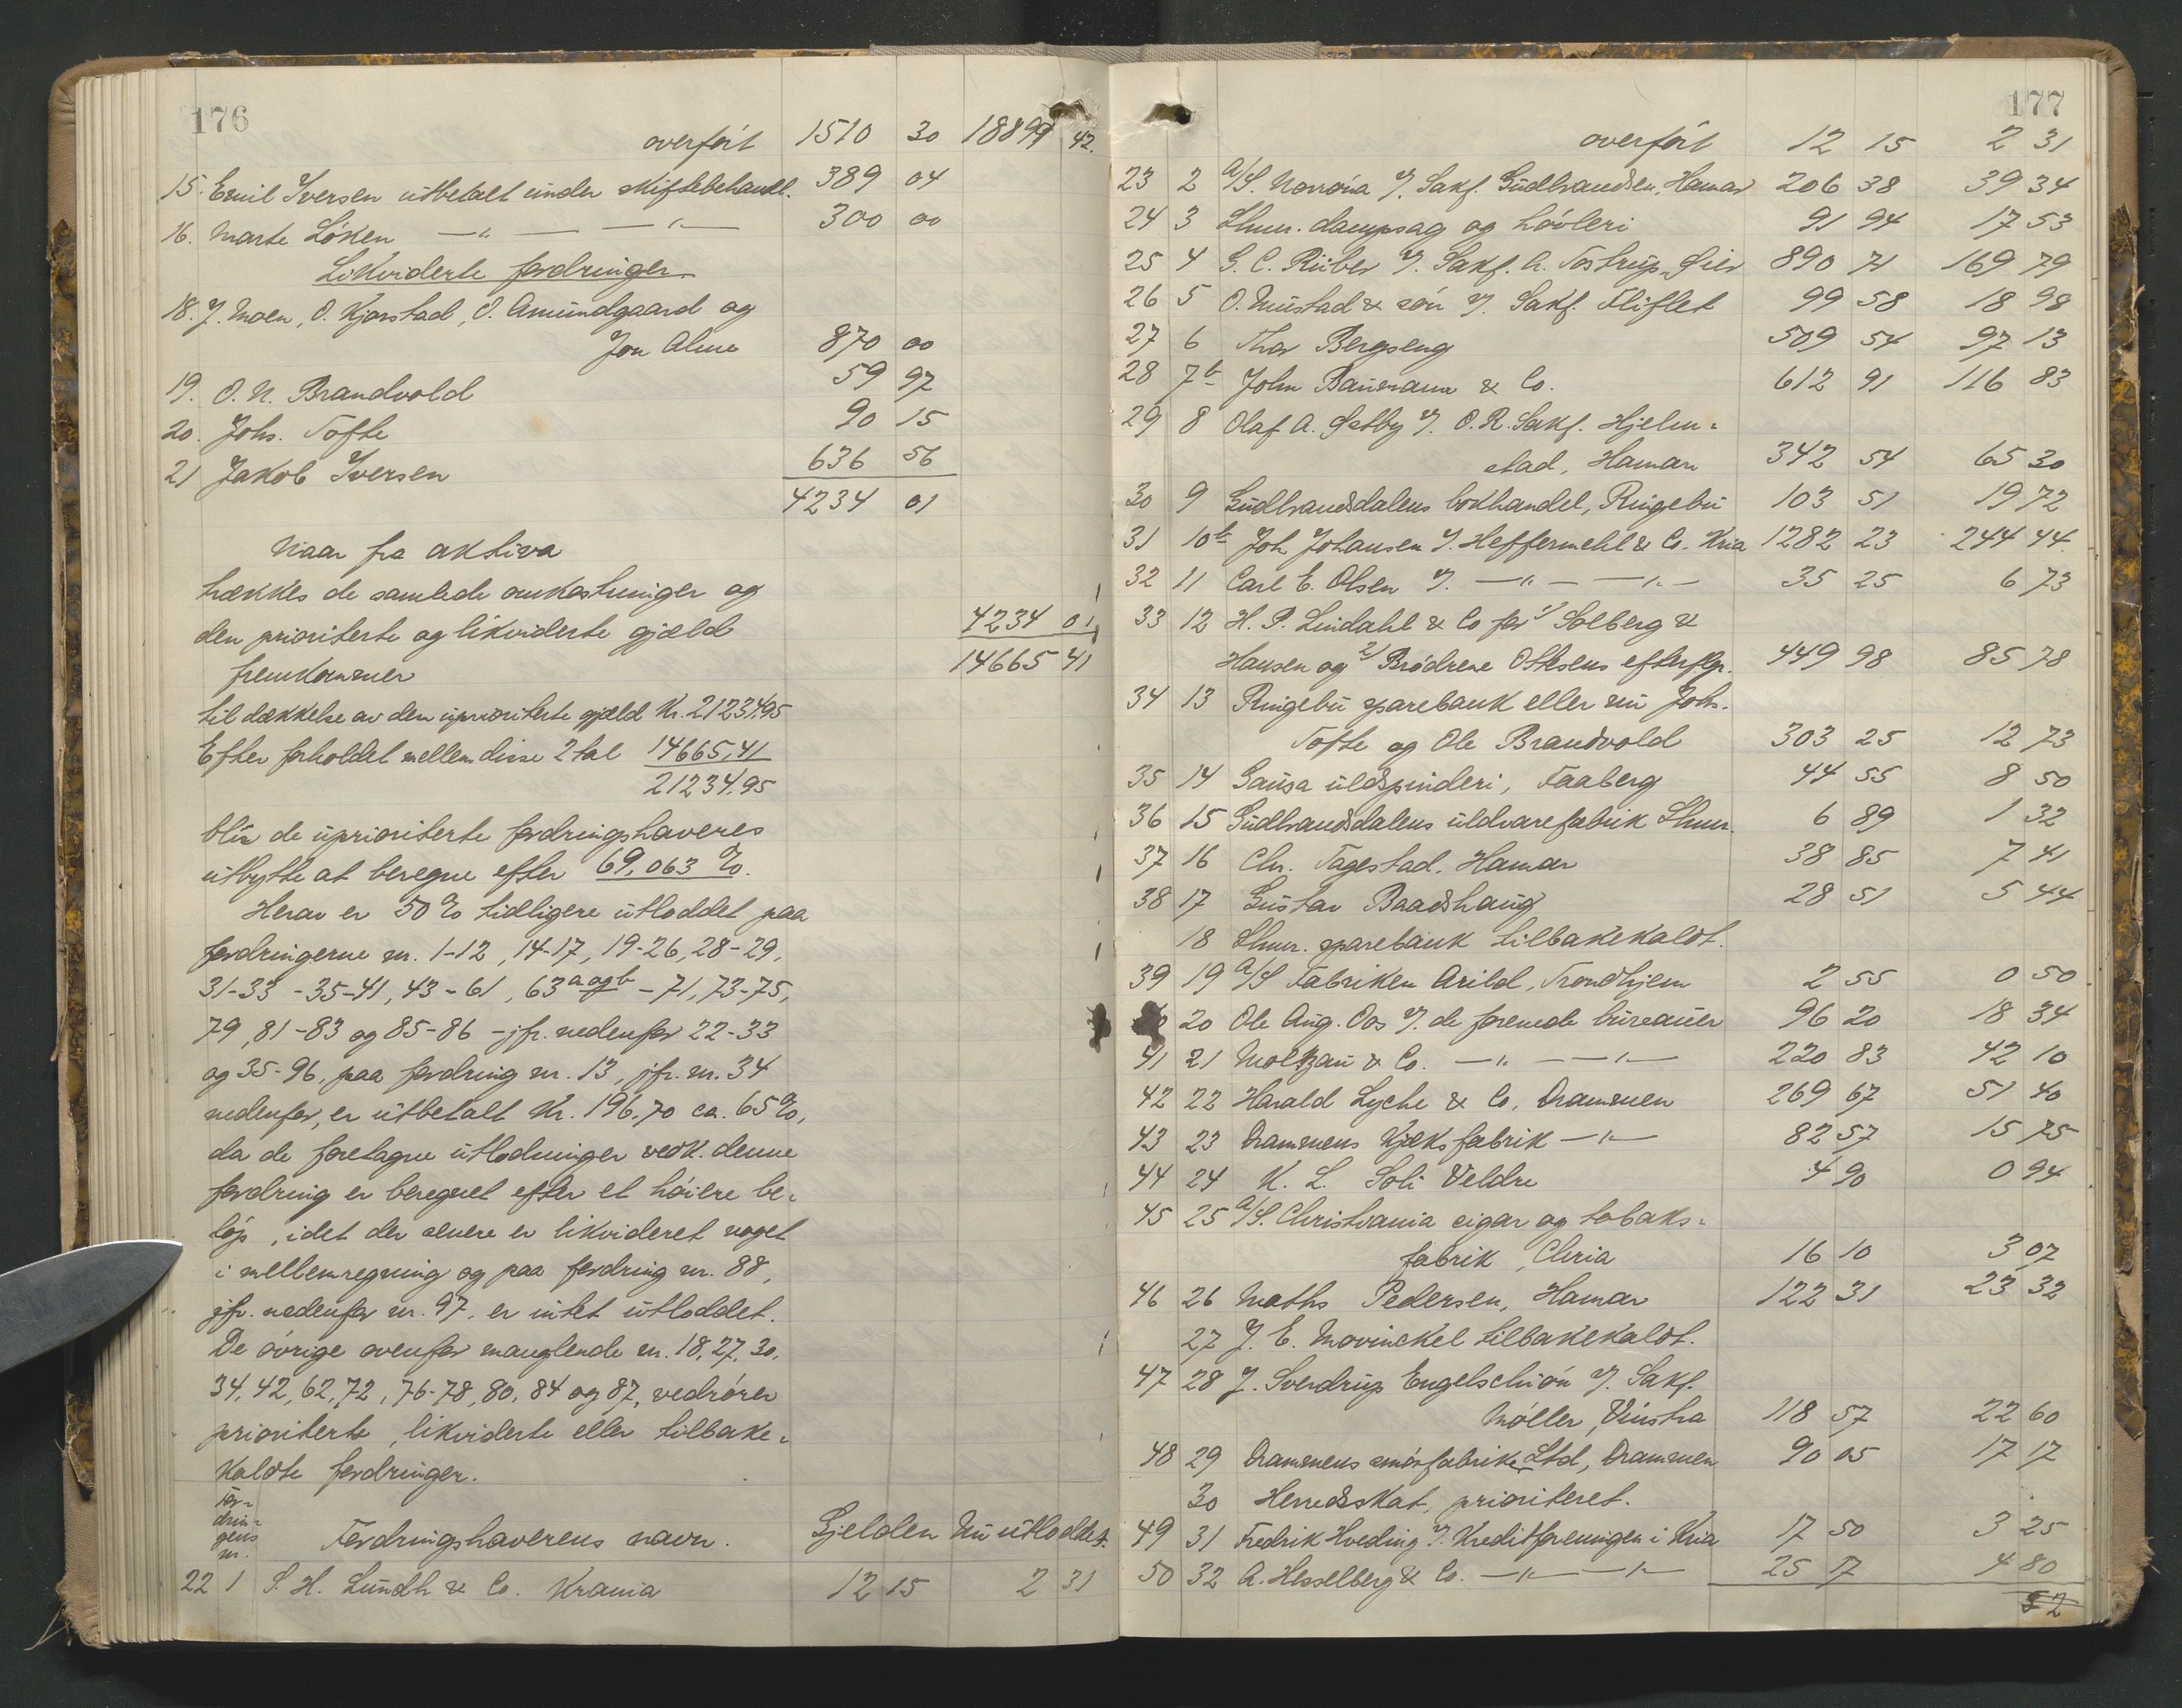 176
overført 1510 30 18899 42.
15. Emil Iversen utbetalt under skiftebehandl. 389 04
16. Marte Löken —"— —"— 300 00
Likviderte fordringer.
18. J. Moen, O. Kjorstad, O. Amundgaard og
Jon Olme 870 00
19. O. N. Brandvold 59 97
20. Johs. Tofte 90 15
21 Jakob Iversen 636 56
4234 01
Naar fra aktiva
trækkes de samlede omkostninger og
den prioriterte og likviderte gjæld 4234 01
fremkommer 14665 41
til dækkelse av den uprioriterte gjæld Kr. 21234,95
Efter forholdet mellem disse 2 tal 14665,41
21234,95
blir de uprioriterte fordringshaveres
utbytte at beregne efter 69,063 %.
Herav er 50 % tidligere utloddet paa
fordringerne nr. 1-12, 14-17, 19-26, 28-29,
31-33 - 35-41, 43-61, 63 a og b - 71, 73-75,
79, 81-83 og 85-86 - jfr. nedenfor 22-33
og 35-96, paa fordring nr. 13, jfr. nr. 34
nedenfor, er utbetalt Kr. 196,70 ca. 65 %,
da de foretagne utlodninger vedk. denne
fordring er beregnet efter et höiere be-
löp, idet der senere er likvideret noget
i mellemregning og paa fordring nr. 88,
jfr. nedenfor nr. 97. er intet utloddet.
De övrige ovenfor manglende nr. 18, 27, 30,
34, 42, 62, 72, 76-78, 80, 84 og 87, vedrörer
prioriterte, likviderte eller tilbake-
kaldte fordringer.
for-
drin-
gens
nr. Fordringshaverens navn. Gjelden Nu utloddet.
22 1 S. H. Lundh & Co. Krania 12 15 2 31
177
overført 12 15 2 31
23 2 A/S. Norröna v. Sakf. Gudbrandsen, Hamar 206 38 39 34
24 3 Lhmr. dampsag og hövleri 91 94 17 53
25 4 G. C. Rieber v. Sakf. A. Tostrup, Öier 890 71 169 79
26 5 O. Mustad & sön v. Sakf. Fliflet 99 58 18 98
27 6 Thor Bergseng 509 54 97 13
28 7b John Baumann & Co. 612 91 116 83
29 8 Olaf A. Østby v. O. R. Sakf. Hjelm-
stad, Hamar 342 54 65 30
30 9 Gudbrandsdalens bokhandel, Ringebu 103 51 19 72
31 10b Joh Johansen v. Heffermehl & Co. Kria 1282 23 244 44.
32 11 Carl E. Olsen v. —"— —"— 35 25 6 73
33 12 H. P. Lindahl & Co for 1/ Solberg &
Hansen og 2/ Brödrene Ottesens efterflgr. 449 98 85 78
34 13 Ringebu sparebank eller nu Johs.
Tofte og Ole Brandvold 303 25 12 73
35 14 Gausa uldspinderi, Faaberg 44 55 8 50
36 15 Gudbrandsdalens uldvarefabrik Lhmr. 6 89 1 32
37 16 Chr. Fagestad. Hamar 38 85 7 41
38 17 Gustav Baadshaug 28 51 5 44
18 Lhmr. sparebank tilbakekaldt.
39 19 A/S Fabriken Arild, Trondhjem 2 55 0 50
20 Ole Aug. Aas v. de forenede bureauer 96 20 18 34
41 21 Moltzau & Co. —"— —"— 220 83 42 10
42 22 Harald Lyche & Co, Drammen 269 67 51 40
43 23 Drammens Kjæksfabrik —"— 82 57 15 75
44 24 K. L. Soli Veldre 4 90 0 94
45 25 A/S. Christiania cigar og tobaks-
fabrik, Chria 16 10 3 07
46 26 Maths Pedersen, Hamar 122 31 23 32
27 J. E. Movinckel tilbakekaldt.
47 28 J. Sverdrup Engelschiön v. Sakf.
Möller, Vinstra 118 57 22 60
48 29 Drammens smörfabriker Ltd, Drammen 90 05 17 17
30 Herredsskat, prioriteret.
49 31 Fredrik Hveding v. Kreditforeningen i Kria 17 50 3 25
50 32 A. Hesselberg & Co. —"— —"— 25 17 4 80